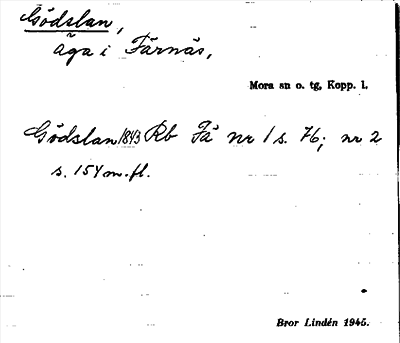 Gödslan,
äga i Färnäs,
Mora sn o. tg, Kopp. l.
Gödslan 1843 Rb Fä nr 1 s. 76; nr 2
s. 154 m.fl.
Bror Lindén 1945.